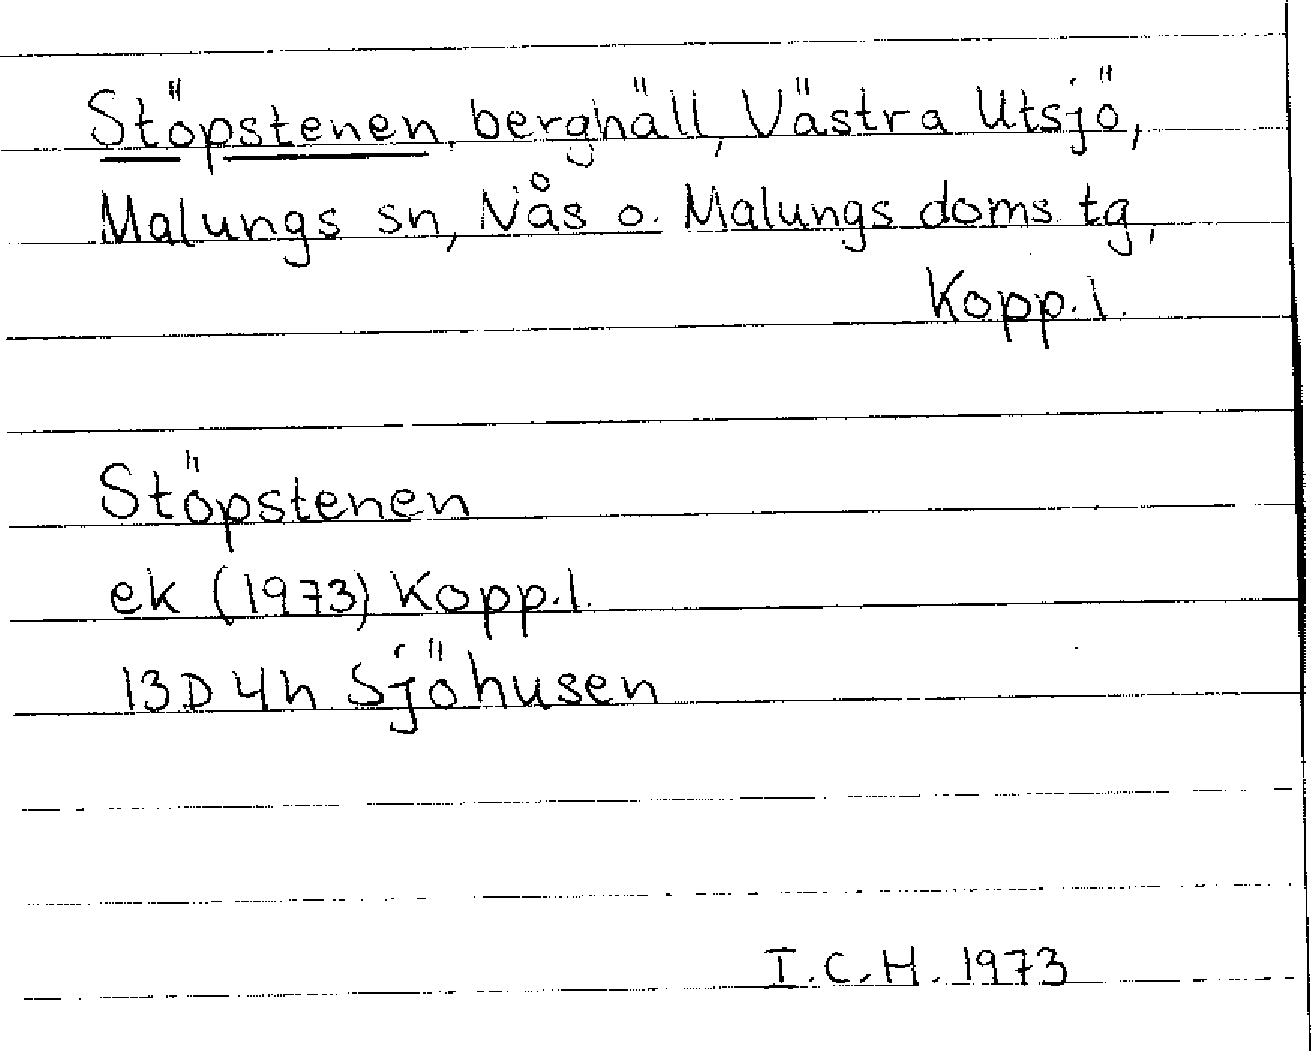 Stöpstenen, berghäll, Västra Utsjö,
Malungs sn, Nås o. Malungs doms. tg,
Kopp. l.
Stöpstenen
ek (1973) Kopp. l.
13D 4h Sjöhusen
I.C.H. 1973